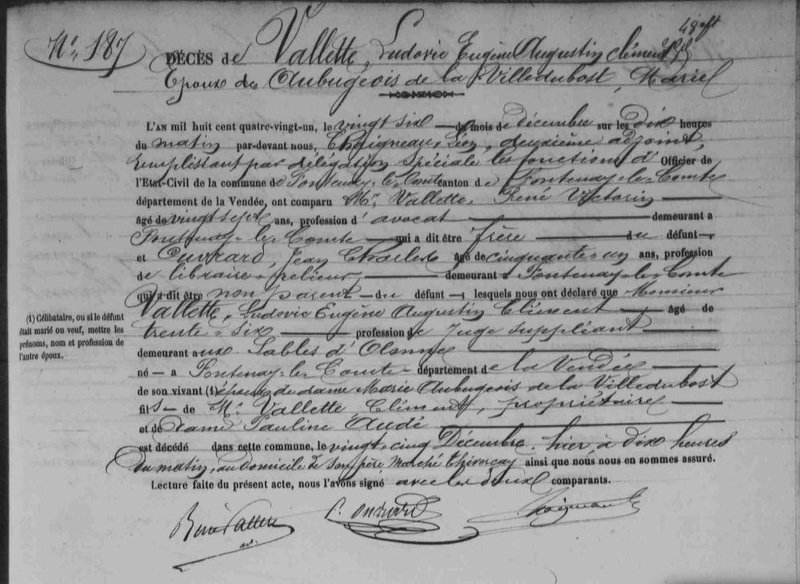 N° 187
DÉCÈS de Vallette, Ludovic Eugène Augustin Clément
Epoux de Aubugeois de la Villedubost, Marie
L'AN mil huit cent quatre-vingt-un, le vingt six du mois de décembre sur les dix heures
du matin par-devant nous, Chaigneau, Léon, deuxième adjoint,
remplissant par délégation spéciale les fonctions d' Officier de
l'Etat-Civil de la commune de Fontenay-le-Comte canton de Fontenay-le-Comte
département de la Vendée, ont comparu Mr Vallette, René Victorin
âgé de vingt sept ans, profession d'avocat demeurant à
Fontenay-le-Comte qui a dit être frère du défunt
et Ouvrard, Jean Charles âgé de cinquante-un ans, profession
de libraire-relieur demeurant à Fontenay-le-Comte
qui a dit être non parent du défunt, lesquels nous ont déclaré que Monsieur
Vallette, Ludovic Eugène Augustin Clément âgé de
trente-six profession de Juge suppléant
demeurant aux Sables d'Olonne
né à Fontenay-le-Comte département de la Vendée
de son vivant (1) époux de dame Marie Aubugeois de la Villedubost
fils de Mr Vallette, Clément, propriétaire
et de Dame Pauline Audé
est décédé dans cette commune, le vingt-cinq Décembre, hier, à dix heures
du matin, au domicile de son père Marché ainsi que nous nous en sommes assuré.
Lecture faite du présent acte, nous l'avons signé avec les deux comparants.
(1) Célibataire, ou si le défunt
était marié ou veuf, mettre les
prénoms, nom et profession de
l'autre époux.
René Vallette
av.
C. Ouvrard
Chaigneau